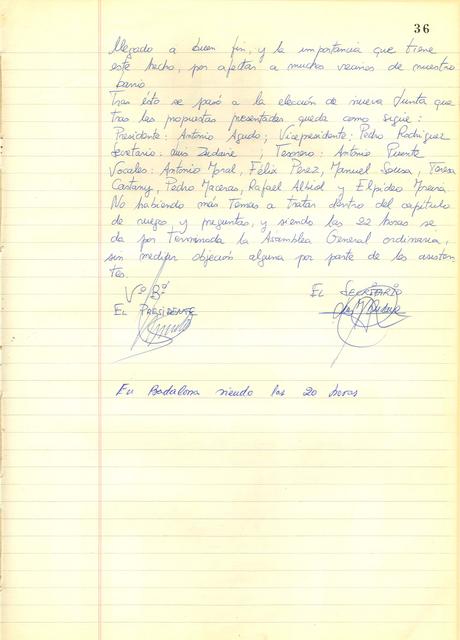 36
llegado a buen fin, y la importancia que tiene
este hecho, por afectar a muchos vecinos de nuestro
barrio
Tras ésto se pasó a la elección de nueva Junta que
tras las propuestas presentadas queda como sigue:
Presidente: Antonio Agudo; Vicepresidente: Pedro Rodríguez
Secretario: Luis Zudaire, Tesorero: Antonio Puerte
Vocales: Antonio Moral, Félix Pérez, Manuel Sousa, Teresa
Castany, Pedro Maceras, Rafael y Elpideo
No habiendo más Temas a tratar dentro del capítulo
de ruegos y preguntas, y siendo las 22 horas se
da por Terminada la Asamblea General ordinaria,
sin mediar objeción alguna por parte de los asisten
tes.
Vº Bº
EL PRESIDENTE
EL SECRETARIO
En Badalona siendo las 20 horas